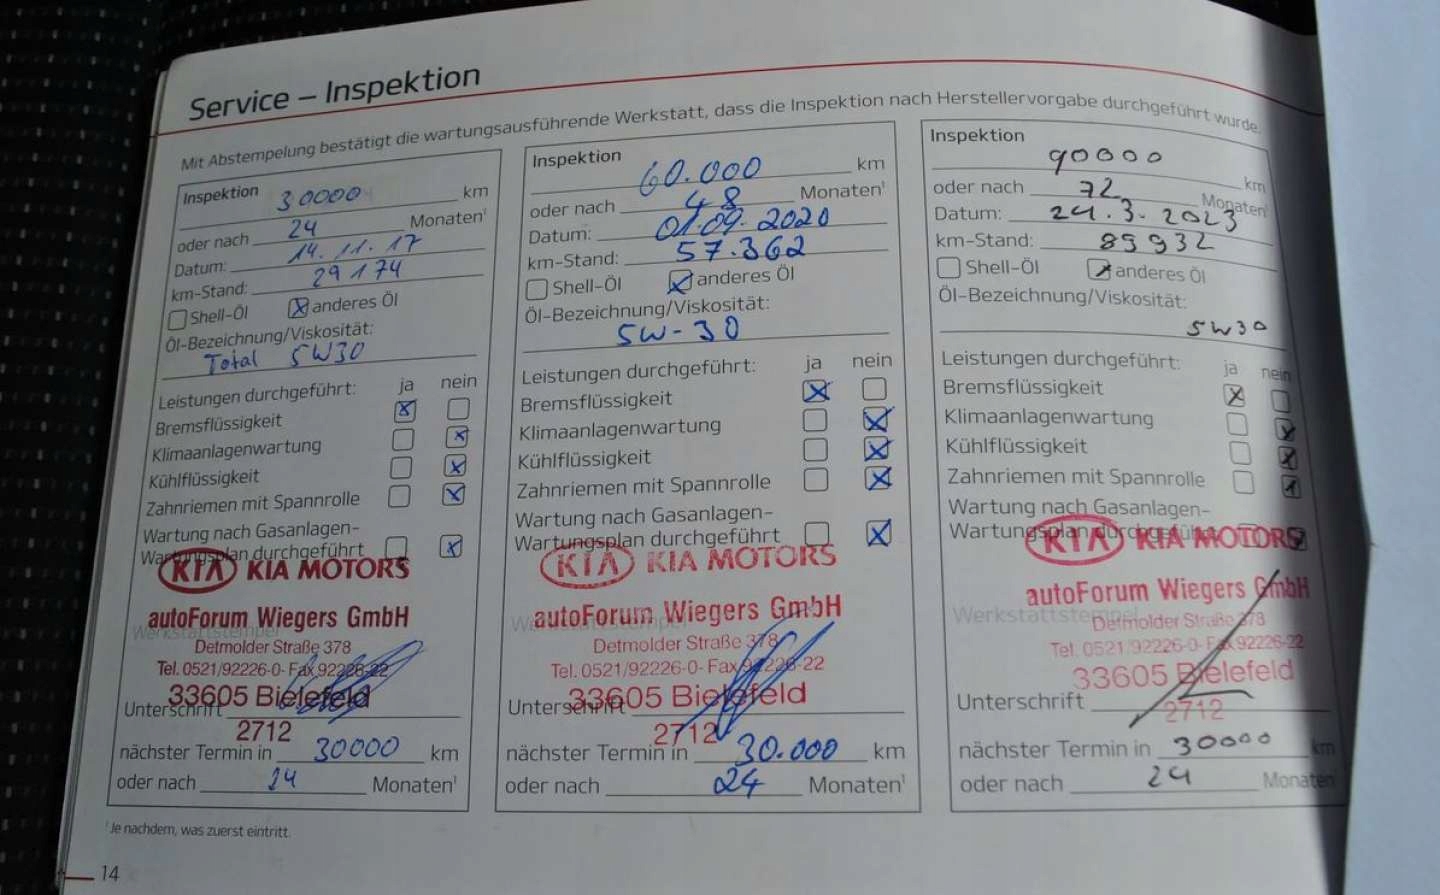 Service – Inspektion
Mit Abstempelung bestätigt die wartungsausführende Werkstatt, dass die Inspektion nach Herstellervorgabe durchgeführt wurde.
Inspektion 30000 km
oder nach 24 Monaten¹
Datum: 14.11.17
km-Stand: 29174
Shell-Öl anderes Öl
Öl-Bezeichnung/Viskosität:
Total 5W30
Leistungen durchgeführt: ja nein
Bremsflüssigkeit
Klimaanlagenwartung
Kühlflüssigkeit
Zahnriemen mit Spannrolle
Wartung nach Gasanlagen-
Wartungsplan durchgeführt
KIA KIA MOTORS
autoForum Wiegers GmbH
Werkstattstempel
Detmolder Straße 378
Tel. 0521/92226-0- Fax 92226-22
33605 Bielefeld
Unterschrift
2712
nächster Termin in 30000 km
oder nach 24 Monaten¹
Inspektion 60.000 km
oder nach 48 Monaten¹
Datum: 01.09.2020
km-Stand: 57.362
Shell-Öl anderes Öl
Öl-Bezeichnung/Viskosität:
5W-30
Leistungen durchgeführt: ja nein
Bremsflüssigkeit
Klimaanlagenwartung
Kühlflüssigkeit
Zahnriemen mit Spannrolle
Wartung nach Gasanlagen-
Wartungsplan durchgeführt
KIA KIA MOTORS
autoForum Wiegers GmbH
Werkstattstempel
Detmolder Straße 378
Tel. 0521/92226-0- Fax 92226-22
33605 Bielefeld
Unterschrift
2712
nächster Termin in 30.000 km
oder nach 24 Monaten¹
Inspektion
90000 km
oder nach 72 Monaten¹
Datum: 24.3.2023
km-Stand: 89932
Shell-Öl anderes Öl
Öl-Bezeichnung/Viskosität:
5W30
Leistungen durchgeführt: ja nein
Bremsflüssigkeit
Klimaanlagenwartung
Kühlflüssigkeit
Zahnriemen mit Spannrolle
Wartung nach Gasanlagen-
Wartungsplan durchgeführt
KIA KIA MOTORS
autoForum Wiegers GmbH
Werkstattstempel
Detmolder Straße 378
Tel. 0521/92226-0- Fax 92226-22
33605 Bielefeld
Unterschrift
2712
nächster Termin in 30000 km
oder nach 24 Monaten¹
¹Je nachdem, was zuerst eintritt.
14